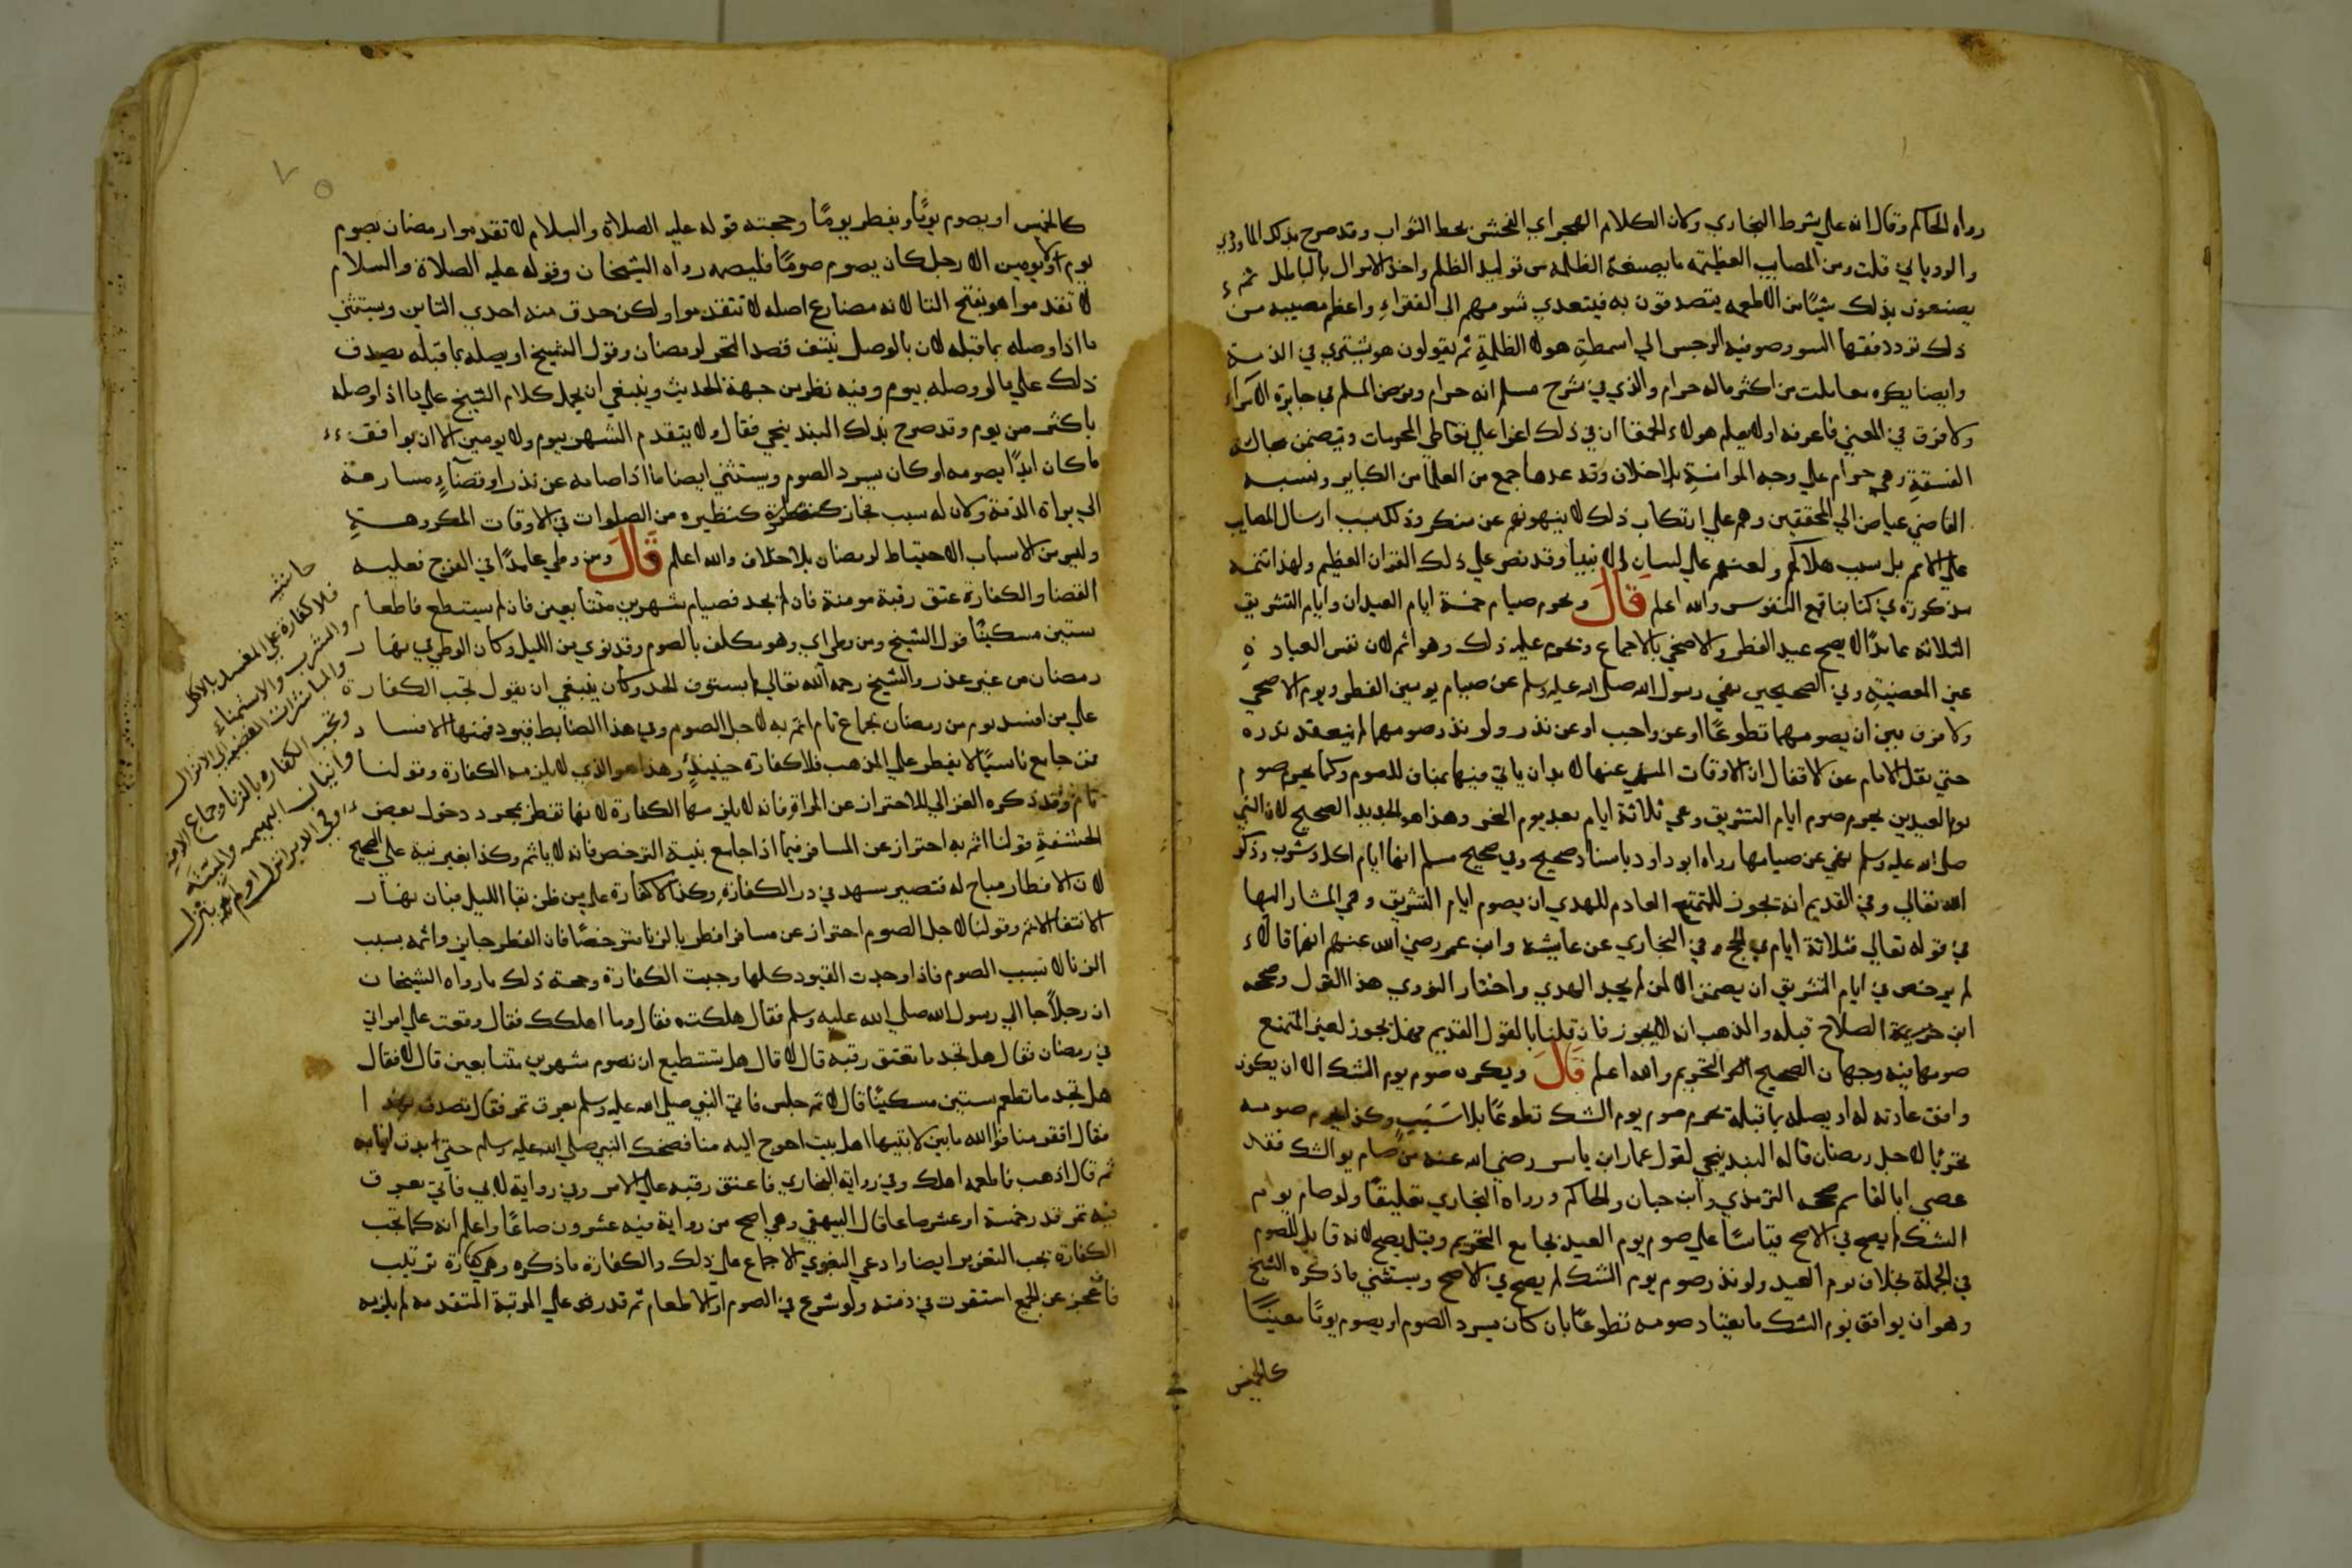 رواه الحاكم وقال انه علي شرط البخاري وكان الكلام الهجر اي الفحش يحط الثواب وقد صرح بذلك الماوردي
والرویاني قلت ومن المصايب العظيمه ما يصنعه الظلمه من توليد الظلم واخذ الاموال بالباطل ثم
يصنعون بذلك شيئًا من الاطعمه يتصدقون به فيتعدي شومهم الي الفقراءِ واعظم مصيبه من
ذلك تردد فقها السو وصوفيه الرجس الي اسمطةِ هولا الظلمةِ ثم يقولون هو يشتري في الذمة
وايضا يكره معاملت من اكثر ماله حرام والذي في شرح مسلم انه حرام ونوص المسلم في جايزة الامراء
ولا فرق في المعني فاعرفه اولا يعلم هولاء الحمقا ان في ذلك اغرا علي تعاطي المحرمات ويتضمن مجالسة
الفسقةِ وهي حرام علي وجه الموانسةِ بلا خلاف وقد عدها جمع من العلما من الكباير ونسبه
القاضي عياض الي المحققين وهم علي ارتكاب ذلك لا ينهونهم عن منكر وذلك سبب ارسال المصايب
علي الامم بل سبب هلاكهم ولعنهم علي لسان الانبيا وقد نص علي ذلك القران العظيم ولهذا تتمه
مذكورة في كتابنا قمع النفوس والله اعلم قال ويحرم صيام خمسة ايام العيدان وايام التشريق
الثلاثه عامدًا لا يصح عيد الفطر والاضحي بالاجماع ويحرم عليه ذلك وهو اثم لان نفس العبادةِ
عين المعصيةِ وفي الصحيحين نهي رسول الله صلى الله عليه وسلم عن صيام يومين الفطر ويوم الاضحي
ولا فرق بين ان يصومهما تطوعًا او عن واجب او عن نذر ولو نذر صومهما لم ينعقد نذره
حتي نقل الامام عن القفال ان الاوقات المنهي عنها لا بد ان ياتي فيها بمنافٍ للصوم وكما يحرم صوم
يوم العيدين يحرم صوم ايام التشريق وهي ثلاثة ايام بعد يوم النحر وهذا هو الجديد الصحيح لان النبي
صلى الله عليه وسلم نهي عن صيامها رواه ابو داود باسناد صحيح وفي صحيح مسلم انها ايام اكل وشرب وذكر
الله تعالي وفي القديم انه يجوز للمتمتع العادم للهدي ان يصوم ايام التشريق وهي المشار اليها
في قوله تعالي فثلاثة ايام في الحج وفي البخاري عن عايشة وابن عمر رضي الله عنهم انهما قالاء
لم يرخص في ايام التشريق ان يصمن الا لمن لم يجد الهدي واختار النووي هذا القول وصححه
ابن الصلاح قبله والمذهب انه لا يجوز فان قلنا بالقول القديم فهل يجوز لغير المتمتع
صومها فيه وجهان الصحيح التحريم والله اعلم قال ويكره صوم يوم الشك الا ان يكون
وافق عادته له او يصله بما قبله يحرم صوم يوم الشك تطوعًا بلا سَبَبٍ وكذا يحرم صومه
تحريًا لاجل رمضان قاله البندنيجي لقول عمار ابن ياسر رضي الله عنه من صام يوم الشك فقد
عصي ابا القاسم صححه الترمذي وابن حبان والحاكم ورواه البخاري تعليقًا ولو صام يوم
الشك لم يصح في الاصح قياسًا علي صوم يوم العيد بجامع التحريم وقيل يصح لانه قابل للصوم
في الجملة بخلاف يوم العيد ولو نذر صوم يوم الشك لم يصح في الاصح ويستثني ما ذكره الشيخ
وهو ان يوافق يوم الشك ما يعتاد صومه تطوعًا بان كان يسرد الصوم او يصوم يومًا معينًا
كالخميس
كالخميس او يصوم يومًا ويفطر يومًا وحجته قوله عليه الصلاة والسلام لا تقدموا رمضان بصوم
يوم او يومين الا رجل كان يصوم صومًا فليصمه رواه الشيخان وقوله عليه الصلاة والسلام
لا تقدموا هو بفتح التا لانه مضارع اصله لا تتقدموا ولكن حذف منه احدي التاين ويستثني
ما اذا وصله بما قبله لان بالوصل ينتف قصد التحر لرمضان وقول الشيخ او يصله بما قبله يصدق
ذلك علي ما لو وصله بيوم وفيه نظر من جهة الحديث وينبغي ان يحمل كلام الشيخ علي ما اذا وصله
باكثر من يوم وقد صرح بذلك البندنيجي فقال ولا يتقدم الشهر بيوم ولا يومين الا ان يوافق
ما كان ابدًا يصومه او كان يسرد الصوم ويستثني ايضا ما اذا صامه عن نذر او قضآءٍ مسارعة
الي براة الذمة ولان له سبب فجاز كنظيره من الصلوات في الاوقات المكروهةِ
وليس من الاسباب الاحتياط لرمضان بلا خلاف والله اعلم قال ومن وطي عامدًا في الفرج فعليه
القضا والكفارة عتق رقبة مومنة فان لم يجد فصيام شهرين متتابعين فان لم يستطع فاطعام
ستين مسكينًا قول الشيخ ومن وطي اي وهو مكلف بالصوم وقد نوي من الليل وكان الوطي في نهار
رمضان من غير عذر والشيخ رحمه الله تعالي لم يستوف الحد وكان ينبغي ان يقول تجب الكفارة
علي من افسد يوم من رمضان بجماع تام اثم به لاجل الصوم وفي هذا الضابط قيود فمنها الافساد
فمن جامع ناسيًا لا يفطر علي المذهب فلا كفارة حينيذٍ وهذا هو الذي لا يلزمه الكفارة وقولنا
تام وقد ذكره الغزالي للاحتراز عن المراة فانه لا يلزمها الكفارة لانها تفطر بمجرد دخول بعض
الحشفةِ قولنا اثم به احتراز عن المسافر فيما اذا جامع بنية الترخص فانه لا ياثم وكذا بغير نية علي الصحيح
لان الافطار مباح له فتصير شبهة في درا الكفارة وكذا لا كفارة علي من ظن بقا الليل فبان نهار
لانتفا الاثم وقولنا لاجل الصوم احتراز عن مسافر افطر بالزنا مترخصًا فان الفطر جايز واثمه بسبب
الزنا لا بسبب الصوم فاذا وجدت القيود كلها وجبت الكفارة وحجة ذلك ما رواه الشيخان
ان رجلاً جا الي رسول الله صلي الله عليه وسلم فقال هلكت فقال وما اهلكك فقال وقعت علي امراتي
في رمضان فقال هل تجد ما تعتق رقبه قال لا قال هل تستطيع ان تصوم شهرين متتابعين قال لا فقال
هل تجد ما تطعم ستين مسكينًا قال لا ثم جلس فاتي النبي صلى الله عليه وسلم بعرق تمر فقال تصدق بهذا
فقال افقر منا فوالله ما بين لابتيها اهل بيت احوج اليه منا فضحك النبي صلى الله عليه وسلم حتي بدت انيابه
ثم قال اذهب فاطعمه اهلك وفي رواية البخاري فاعتق رقبه علي الامر وفي رواية لابي فاتي بعرق
فيه تمر قدر خمسة او عشر صاعا قال البيهقي وهي اصح من رواية فيه عشرون صاعًا واعلم انه كما تجب
الكفارة تجب التعزير ايضا وادعي البغوي الاجماع علي ذلك والكفارة ما ذكره وهي كفارة ترتيب
فان عجز عن الجميع استقرت في ذمته ولو شرع في الصوم او الاطعام ثم قدر علي المرتبة المتقدمه لم يلزمه
حاشيه
فلا كفارة علي المفسد بالاكل
والشرب والاستمناء
والمباشرات المفضيه الي الانزال
وتجب الكفاره بالزنا وجماع الامه
واتيان البهيمه والميته
وفي الدبر انزل او لم ينزل